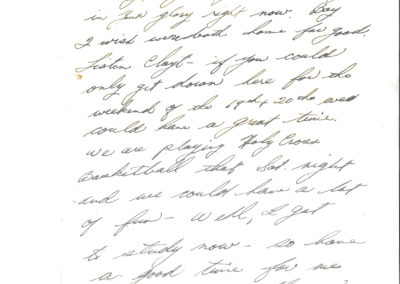 in your glory right now. Boy
I wish we were both home for good.
Listen Clayt - if you could
only get down here for the
weekend of the 19th & 20th we
could have a great time.
We are playing Holy Cross
Basketball that Sat. night
and we could have a lot
of fun - Well, I got
to study now - so have
a good time for me